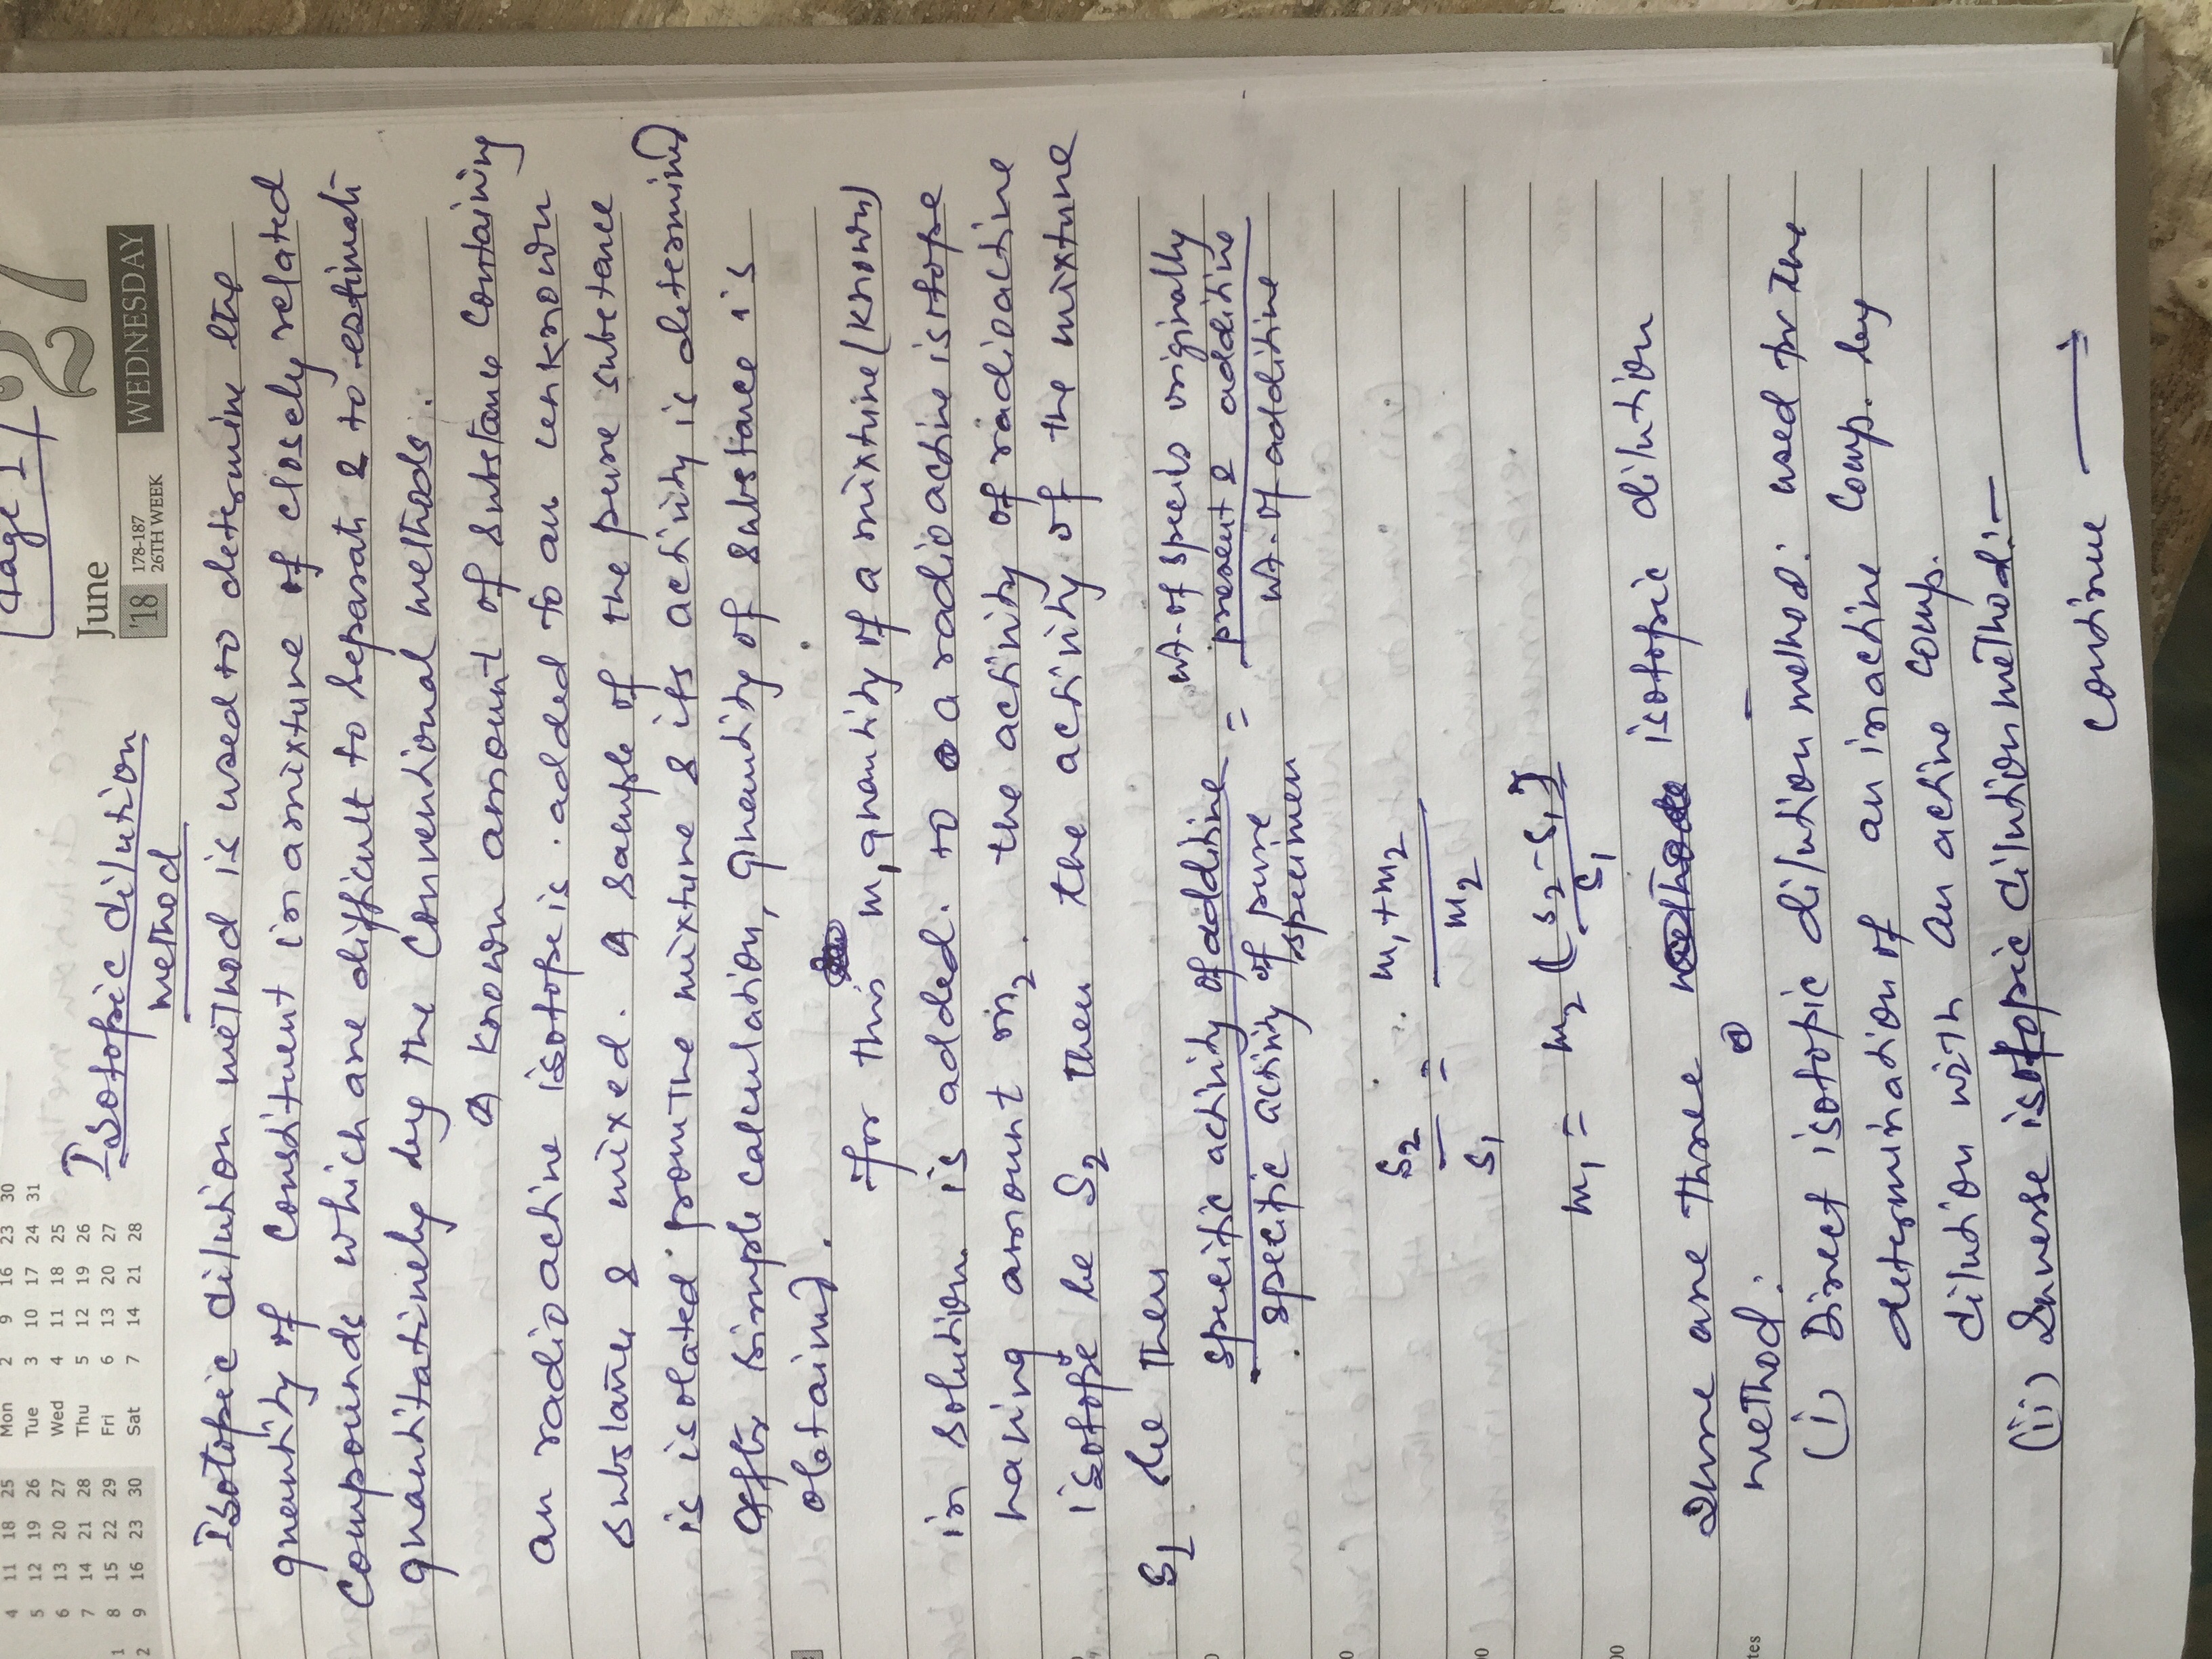 Page 1
27
June
WEDNESDAY
'18
178-187
26TH WEEK
Mon 2 9 16 23 30
Tue 3 10 17 24 31
Wed 4 11 18 25
Thu 5 12 19 26
Fri 6 13 20 27
Sat 7 14 21 28
4 11 18 25
5 12 19 26
6 13 20 27
7 14 21 28
1 8 15 22 29
2 9 16 23 30
Isotopic dilution
method
Isotopic dilution method is used to determine the
quantity of constituent in a mixture of closely related
compounds which are difficult to separate & to estimate
quantitatively by the conventional methods.
A known amount of substance containing
an radioactive isotope is added to an unknown
substance & mixed. A sample of the pure substance
is isolated from the mixture & its activity is determined
After simple calculation, quantity of substance is
obtained.
for this m1 quantity of a mixture (known)
in solution is added. to a radioactive isotope
having amount m2. the activity of radioactive
isotope be S2 then the activity of the mixture
S1 be then
specific activity of additive = wt. of specis originally present & additive
specific activity of pure specimen wt. of additive
S2 = m1+m2
S1 m2
m1 = m2 (S2-S1)
S1
There are three isotopic dilution
method:
(i) Direct isotopic dilution method: used for the
determination of an inactive comp. by
dilution with an active comp.
(ii) Inverse isotopic dilution method:—
continue →
tes